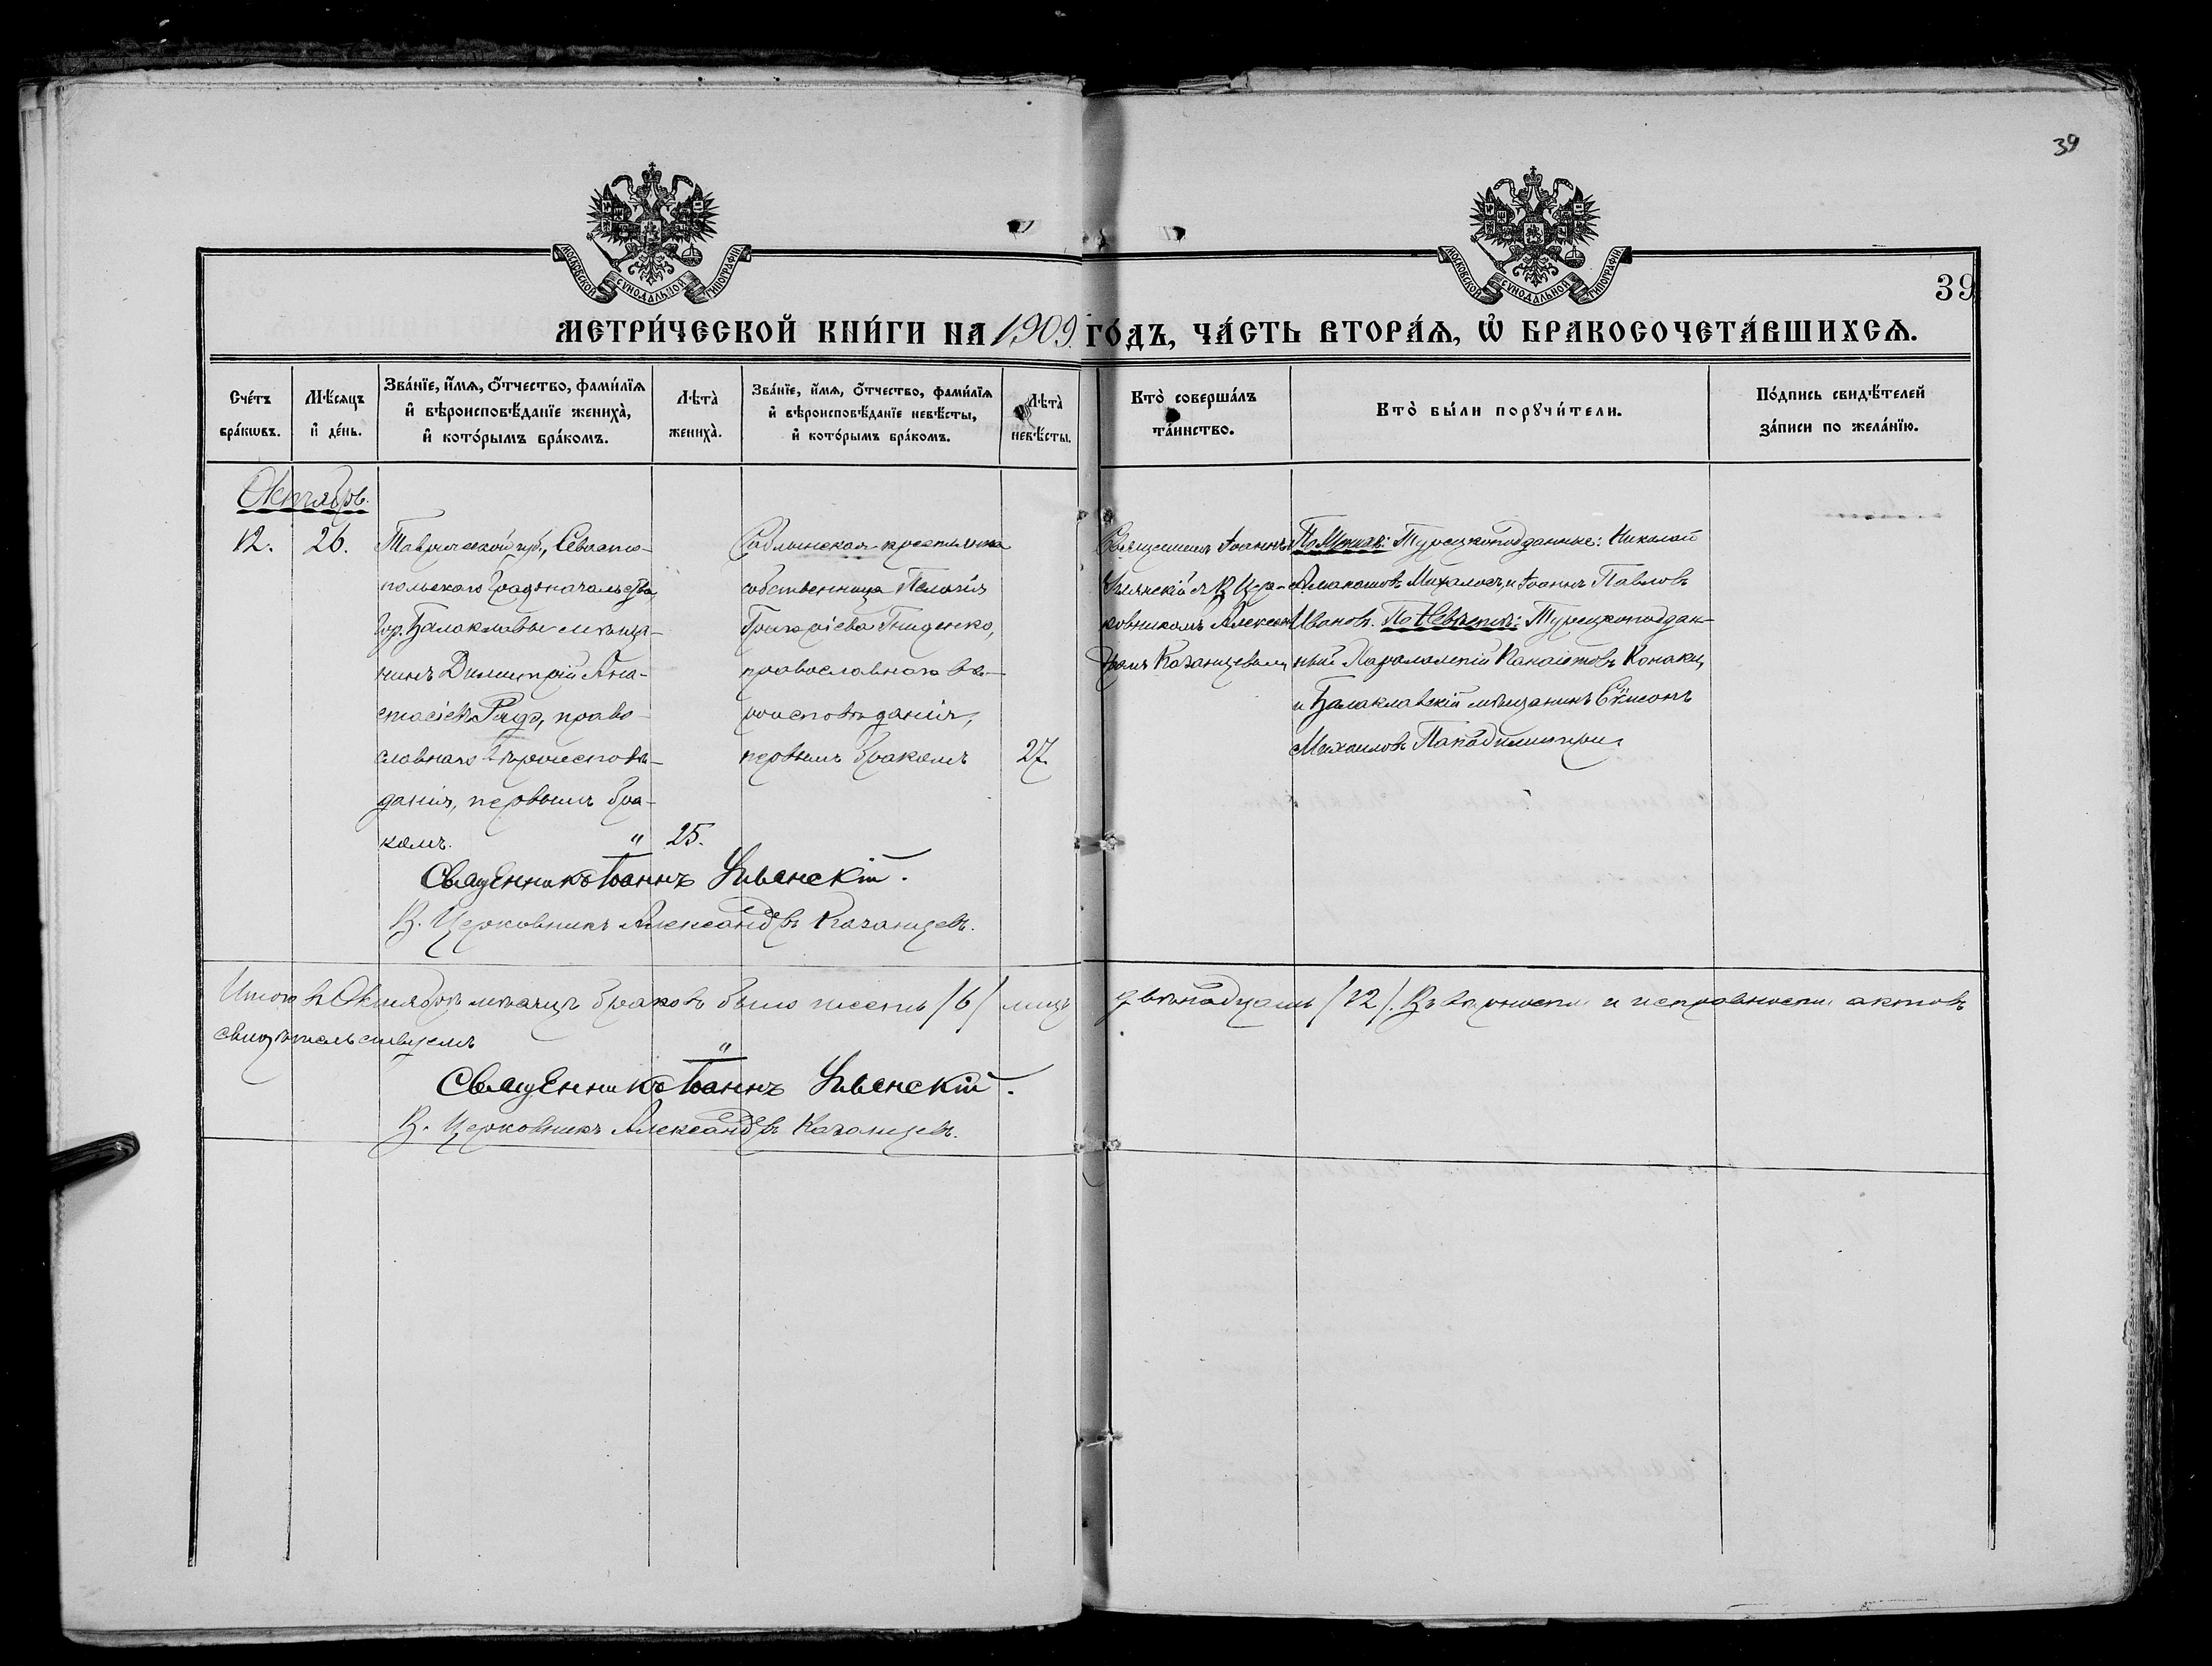 39
МОСКОВСКОЙ СѴНОДАЛЬНОЙ ТИПОГРАФІИ
МОСКОВСКОЙ СѴНОДАЛЬНОЙ ТИПОГРАФІИ
39
МЕТРИ́ЧЕСКОЙ КНИ́ГИ НА 1909 ГО́ДЪ, ЧА́СТЬ ВТОРА́Ѧ, Ѡ҆ БРАКОСОЧЕТА́ВШИХСѦ.
Сче́тъ
бра́кѡвъ.
Мѣ́сяцъ
и҆ де́нь.
Зва́нїе, и҆́мѧ, ѻ҆́тчество, фами́лїѧ
и҆ вѣроисповѣ́данїе жениха̀,
и҆ кото́рымъ бра́комъ.
Лѣта̀
жениха̀.
Зва́нїе, и҆́мѧ, ѻ҆́тчество, фами́лїѧ
и҆ вѣроисповѣ́данїе невѣ́сты,
и҆ кото́рымъ бра́комъ.
Лѣта̀
невѣ́сты.
Кто̀ соверша́лъ
та́инство.
Кто̀ бы́ли порꙋчи́тели.
По́дпись свидѣ́телей
за́писи по жела́нїю.
Октябрь.
12.
26.
Таврической губ., Севасто-
польскаго Градоначальства,
гор. Балаклавы мѣща-
нинъ Димитрій Ана-
стасіевъ право-
славнаго вѣроисповѣ-
данія, первымъ бра-
комъ.
25.
крестьянка
собственница Пелагія
Григоріева Гниденко,
православнаго вѣ-
роисповѣданія,
первымъ бракомъ
27.
Священникъ Іоаннъ
и Цер-
ковникомъ Алексан-
дромъ Казанцевымъ
По Женихѣ: Турецкоподданные: Николай
Михалосъ, и Іоаннъ Павловъ
Ивановъ. По Невѣстѣ: Турецкоподдан-
ный Панаіотовъ Конаки,
и Балаклавскій мѣщанинъ Сѵмеонъ
Михаиловъ Пападимитри.
Священникъ Іоаннъ
И. Церковникъ Александръ Казанцевъ.
Итого въ Октябрѣ мѣсяцѣ браковъ было шесть /6/ лицъ двѣнадцать /12/. Въ вѣрности и исправности актовъ
свидѣтельствуемъ
Священникъ Іоаннъ
И. Церковникъ Александръ Казанцевъ.